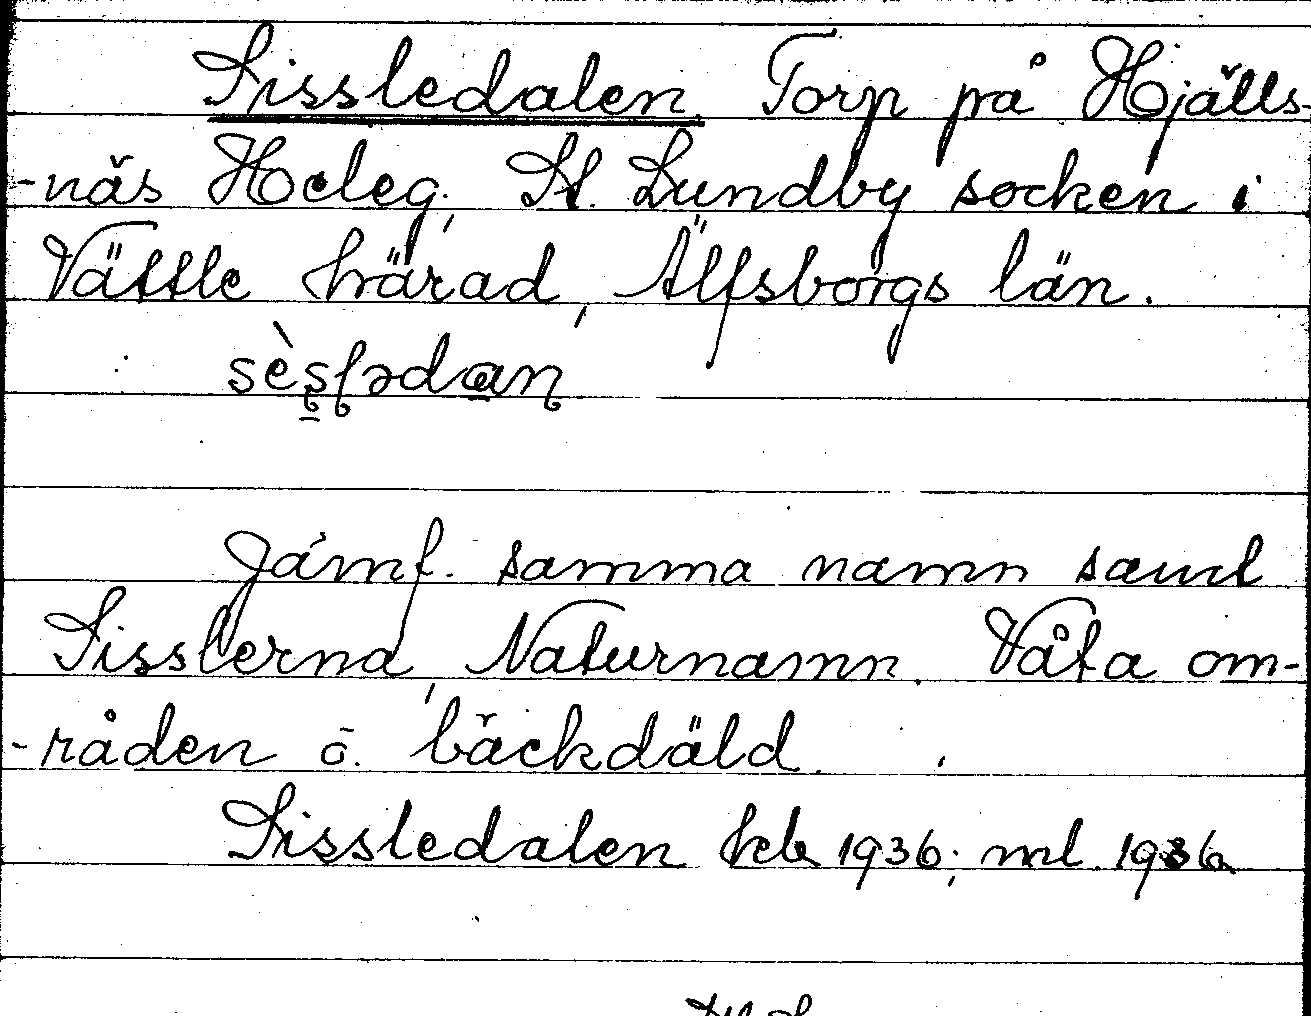 Sissledalen Torp på Hjälls-
-näs Heleg, St. Lundby socken i
Vättle härad, Älfsborgs län.
Jämf. samma namn samt
Sisslerna, Naturnamn. Våta om-
-råden o. bäckdäld.
Sissledalen hck 1936; ml 1936